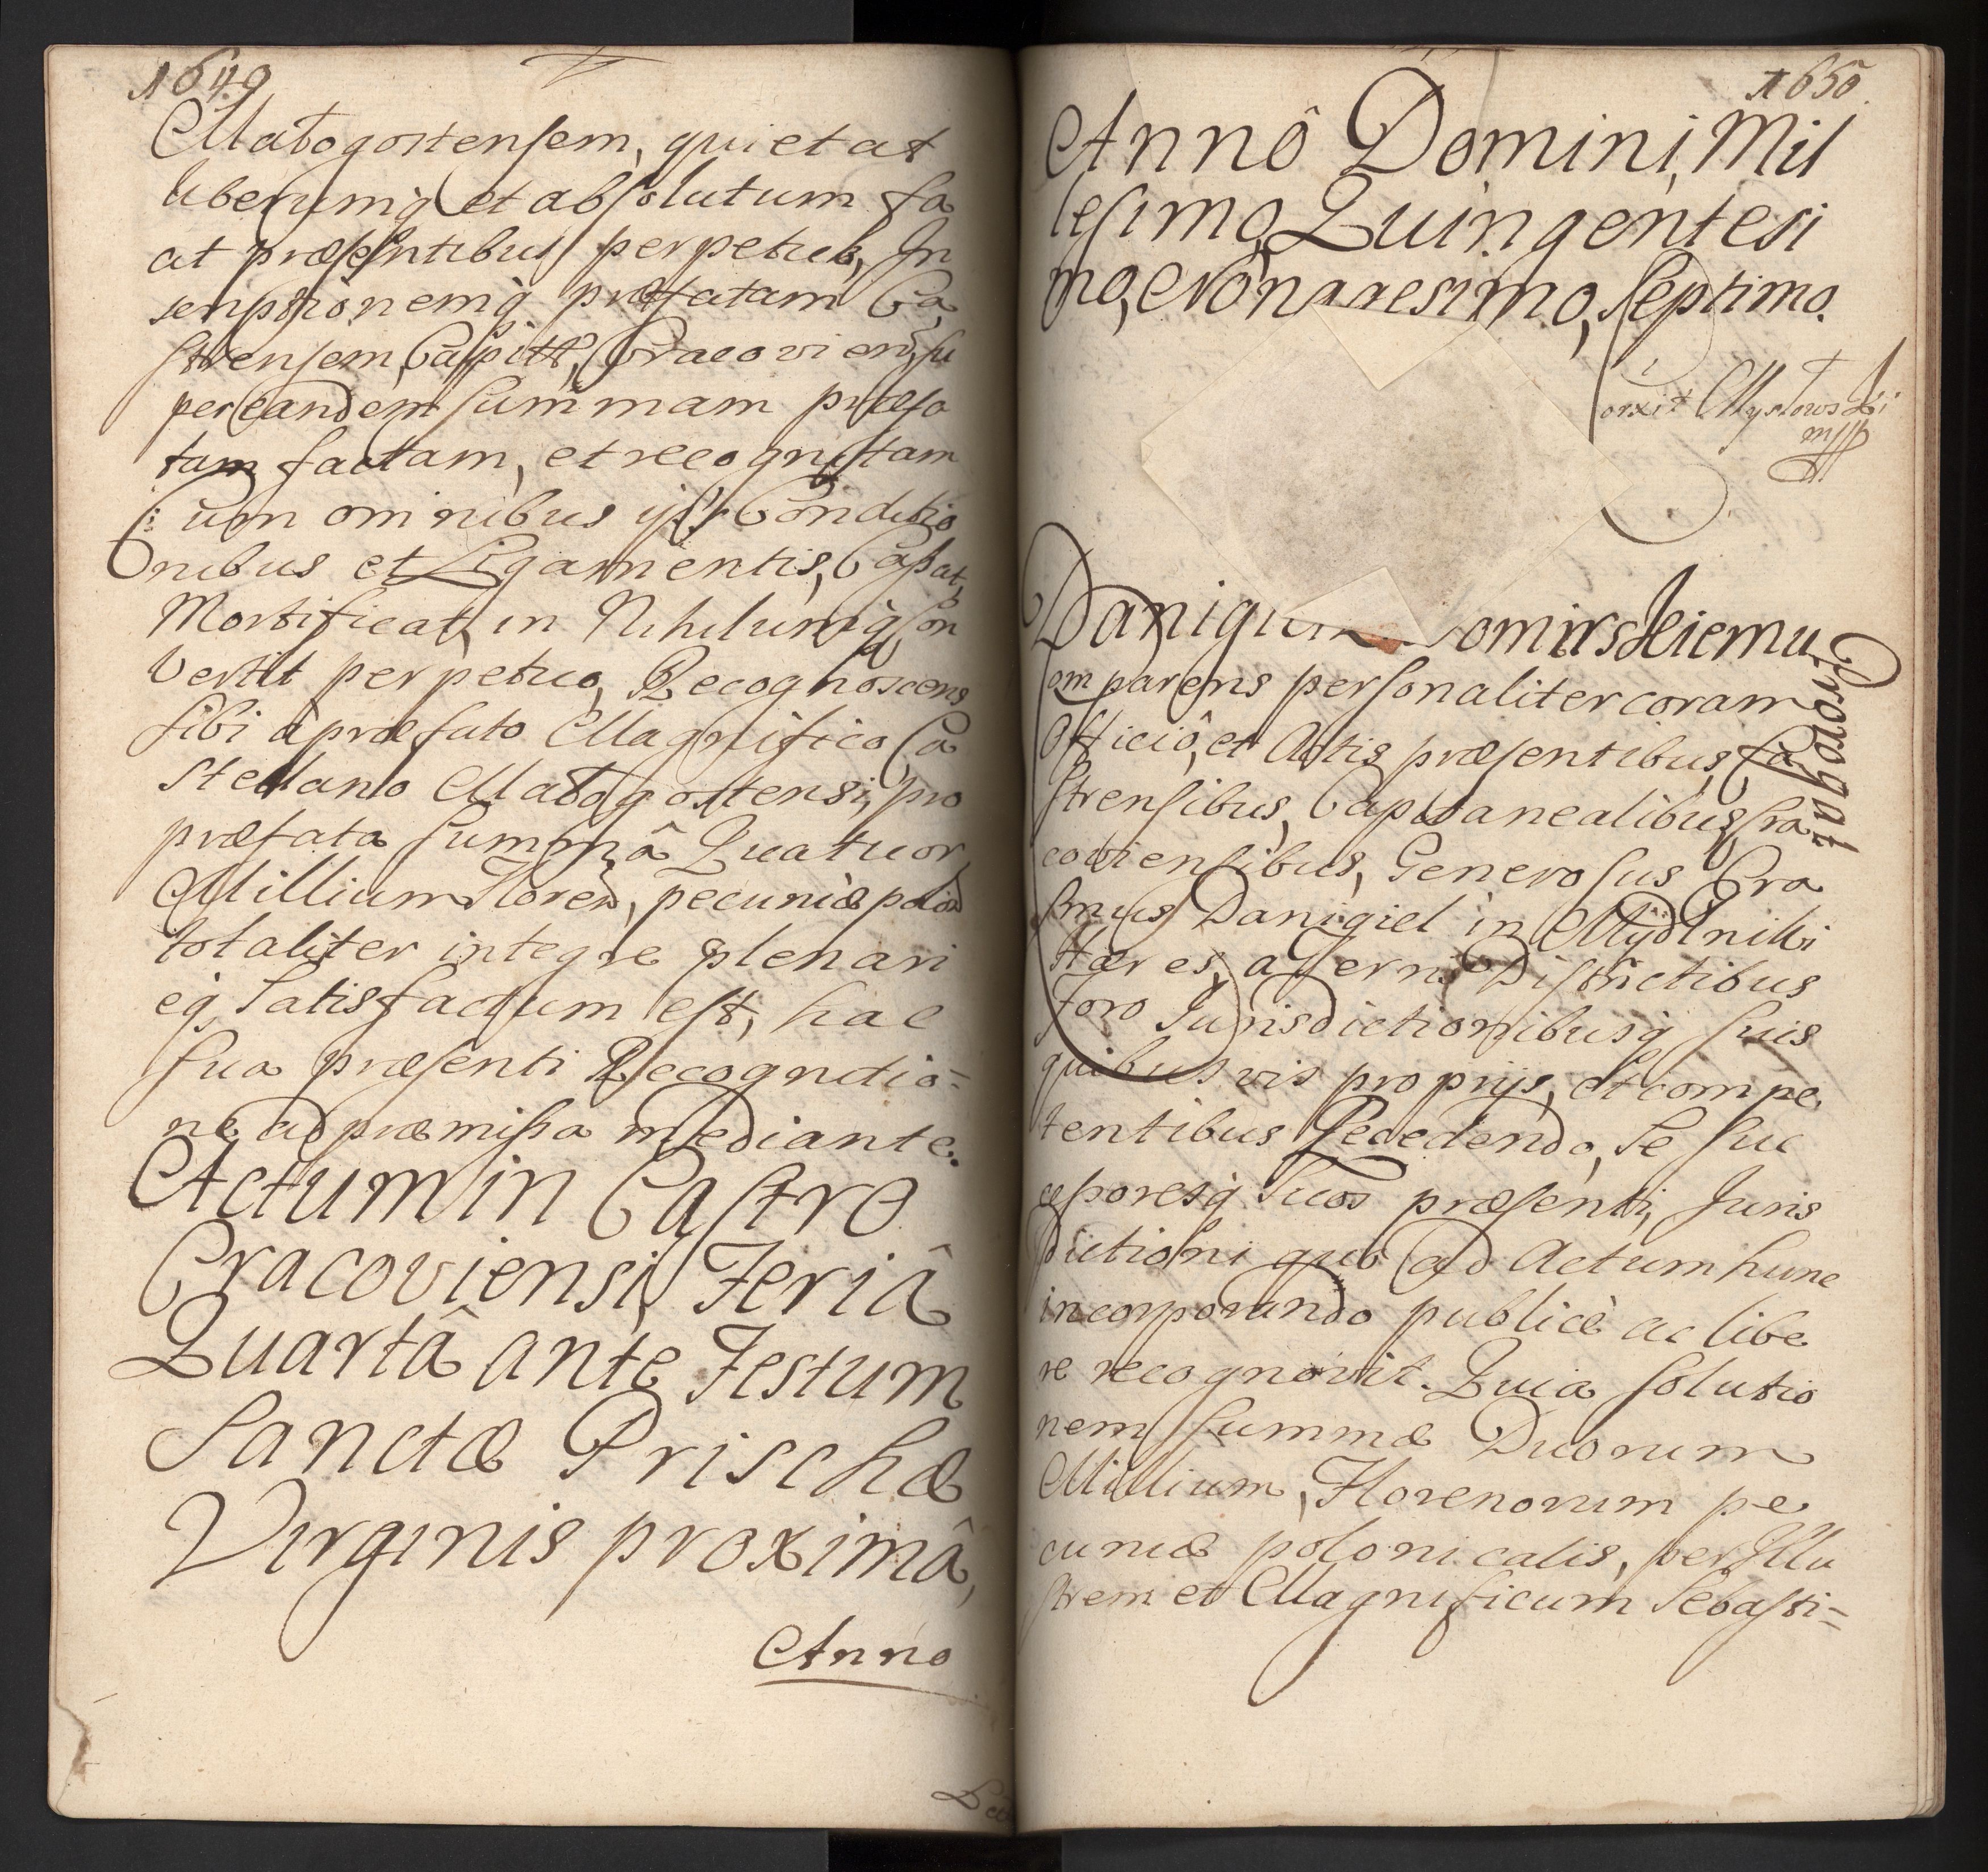 1649
Małogostensem, quietat
liberumq et absolutum fa
cit præsentibus perpetuo, In
scriptionemq præfatam Ca
strensem, Capitt, Cracovien, su
per eandem summam præfa
tam factam, et recognitam
Cum omnibus ips Conditio
nibus et Ligamentis, Cassat,
Mortificat, in Nihilumq Con
vertit perpetuo, Recognoscens
sibi a præfato Magnifico Ca
stellano Małogostensi, pro
præfata summâ Quatuor
Millium Floren, pecuniæ polon
totaliter integre plenari
eq Satisfactum est, hac
sua præsenti Recognitio=
ne ad præmissa mediante.
Actum in Castro
Cracoviensi, Feriâ
Quartâ ante Festum
Sanctæ Prischæ
Virginis proximâ,
Anno
1650
Annô Domini, Mil
lesimo, Quingentesi
mo, Nonagesimo, Septimo.
orxit Mysłowski
mpp
Danigiel omirskiemu
omparens personaliter coram
Officiô, et Actis præsentibus, Ca
strensibus, Capitanealibus, Cra
coviensibus, Generosus Era
smus Danigiel in Mydlniki
Hæres, a Terris Districtibus
foro Iurisdictionibusq suis
quibusvis proprijs, et compe
tentibus Recedendo, Se suc
cessoresq suos præsenti, Juris
dictioni quo ad Actum hunc
incorporando publicè ac libe
re recognovit. Quia solutio
nem summæ Duorum
Millium, Florenorum pe
cuniæ polonicalis, per Illu
strem et Magnificum Sebasti=